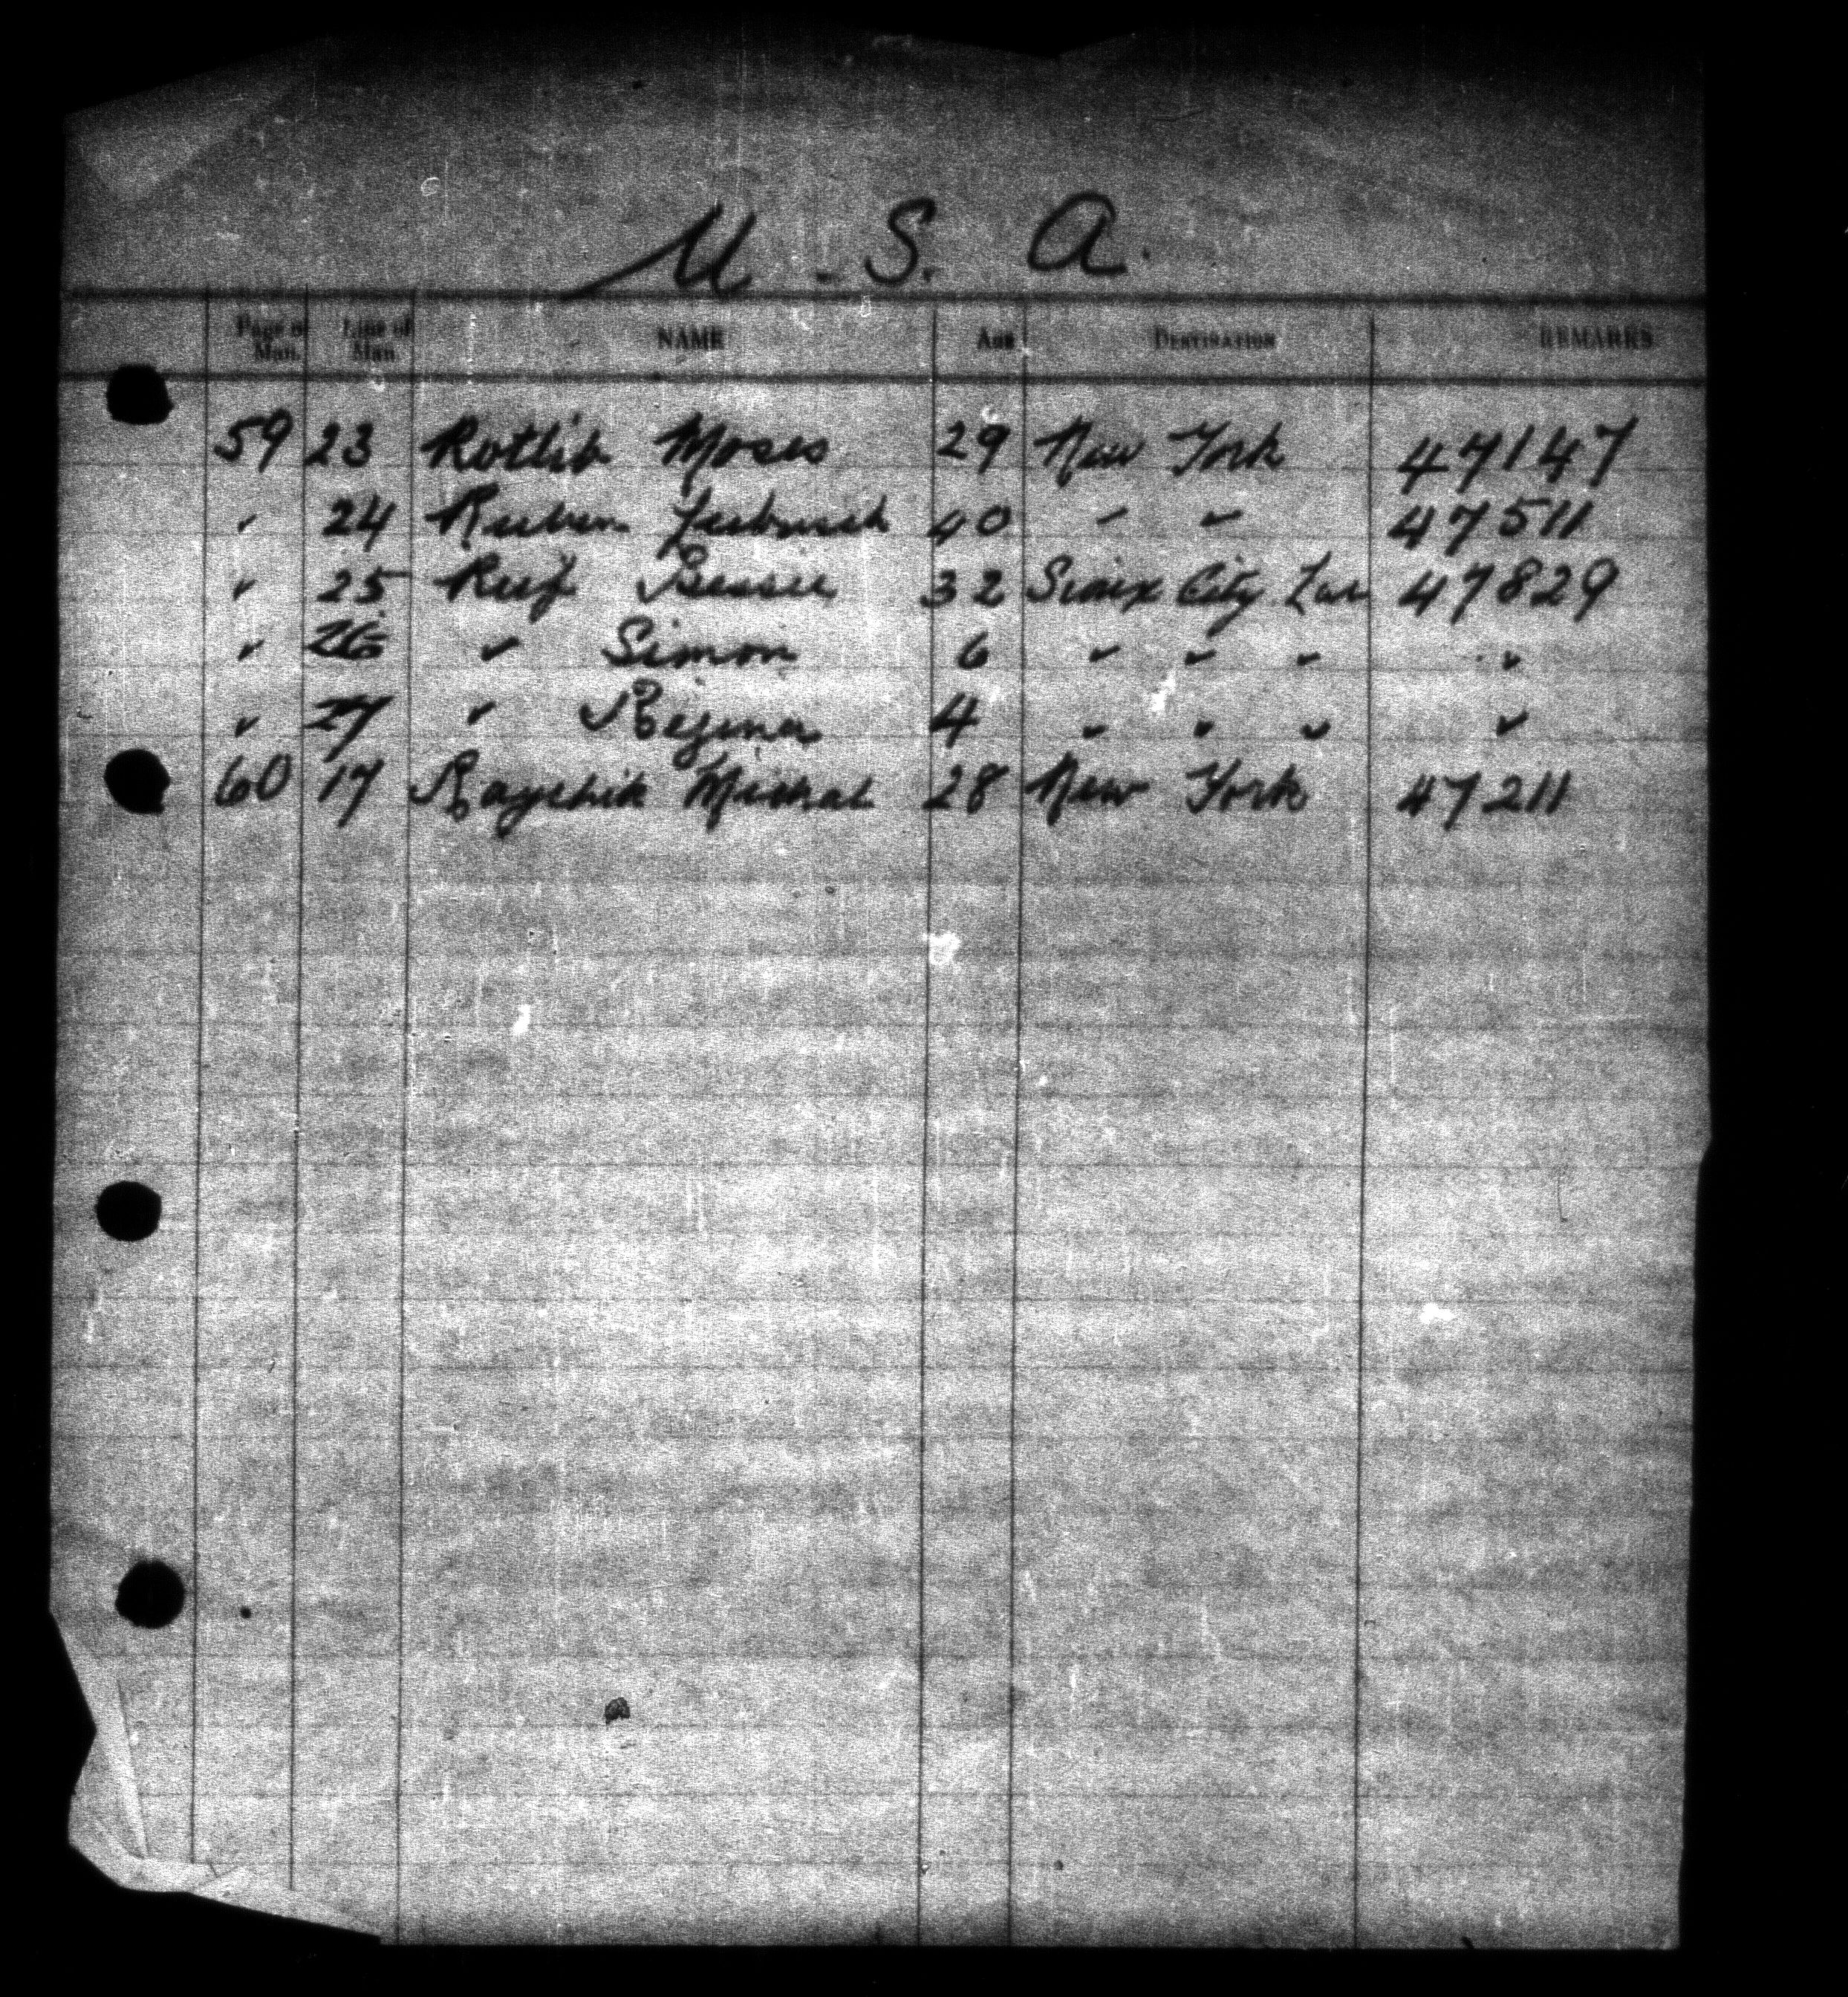 U. S. A.
Page of Man. Line of Man. NAME AGE DESTINATION REMARKS
59 23 Rotlib Moses 29 New York 47147
" 24 Ruben 40 " " 47511
" 25 Bessie 32 Sioux City 47829
" 26 " Simon 6 " " " "
" 27 " Regina 4 " " " "
60 17 Raychik Michal 28 New York 47211